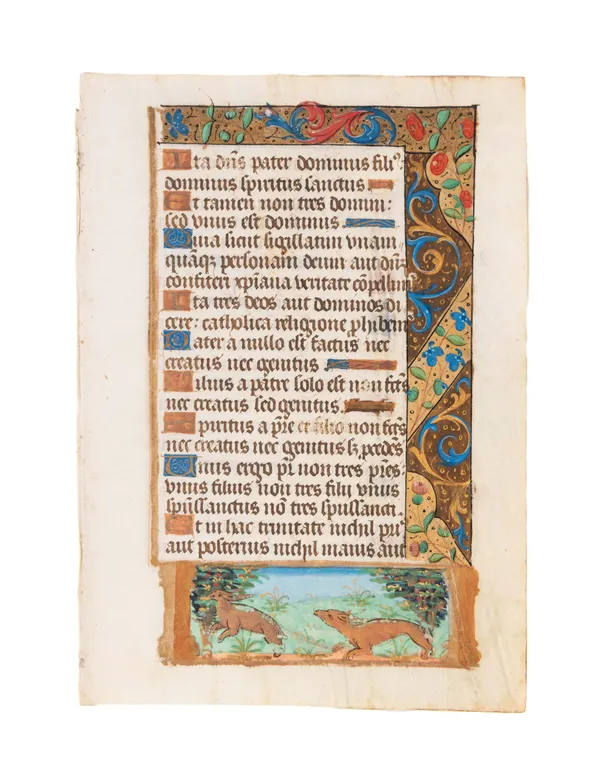 Ita dñs pater dominus fili⁹
dominus spiritus sanctus
Et tamen non tres domini:
sed vnus est dominus
Quia sicut sigillatim vnam
quãqȝ personam deum aut dñz
confiteri xp̃iana veritate cõpellim⁹
Ita tres deos aut dominos di
cere: catholica religione ꝓhibem⁹
Pater a nullo est factus nec
creatus nec genitus
Filius a patre solo est non fcũs
nec creatus sed genitus
Spiritus a p̃re et filio non fcũs
nec creatus nec genitus sȝ ꝓcedẽs
Vnus ergo pr̃ non tres p̃res:
vnus filius non tres filij vnus
spũssanctus nõ tres spũssancti
Et in hac trinitate nichil pri⁹
aut posterius nichil maius aut